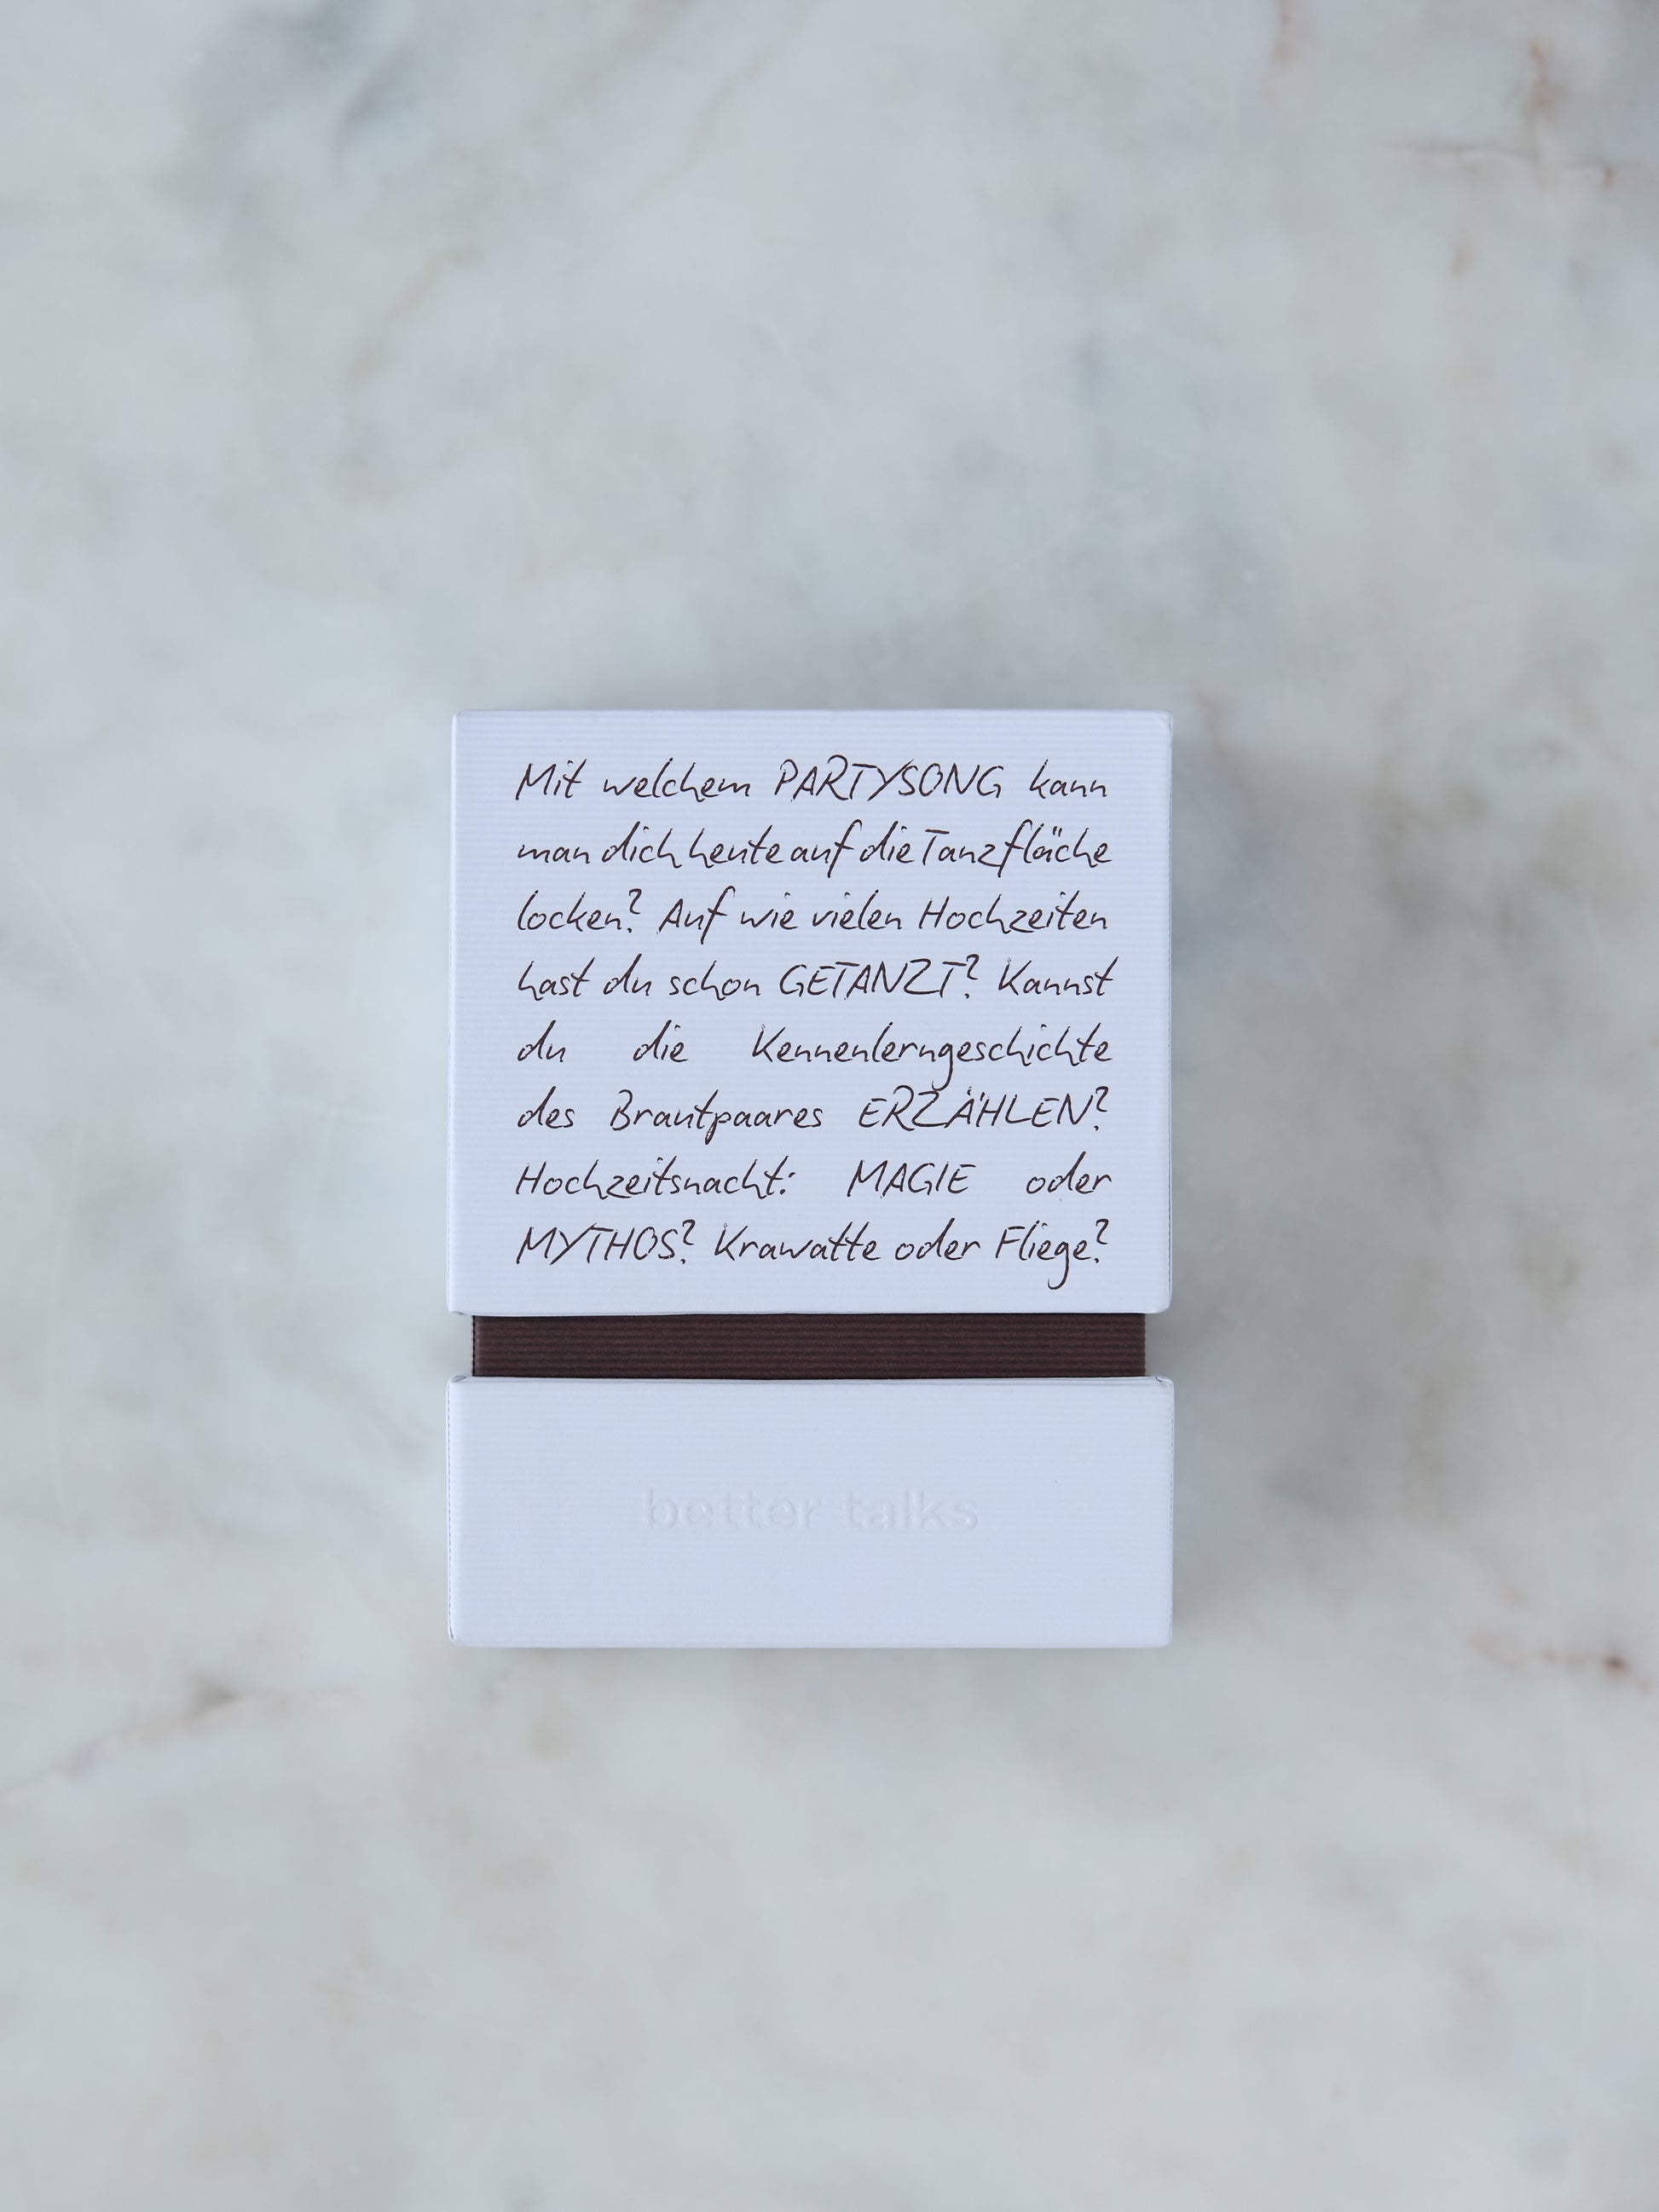 Mit welchem PARTYSONG kann
man dich heute auf die Tanzfläche
locken? Auf wie vielen Hochzeiten
hast du schon GETANZT? Kannst
du die Kennenlerngeschichte
des Brautpaares ERZÄHLEN?
Hochzeitsnacht: MAGIE oder
MYTHOS? Krawatte oder Fliege?
better talks